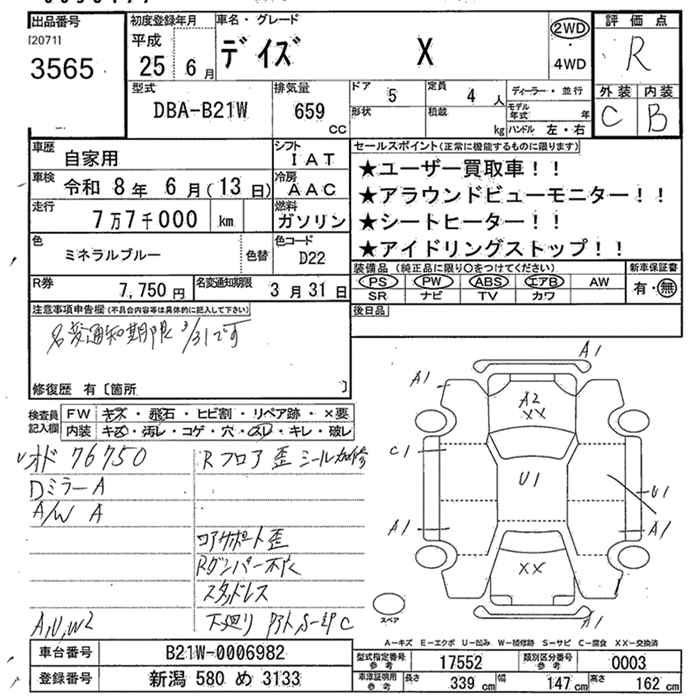 出品番号
I20711
3565
初度登録年月
平成
25 6月
車名・グレード
デイズ X
2WD
・
4WD
評価点
R
外装 内装
C B
型式
DBA-B21W
排気量
659
CC
ドア 5
定員 4 人
形状
積載 kg
ディーラー・並行
モデル年式 年
ハンドル 左・右
車歴
自家用
シフト
IAT
車検 令和 8年 6月(13日)
冷房
AAC
走行
7万7千000 km
燃料
ガソリン
色
ミネラルブルー
色替
色コード
D22
R券
7,750円
名変通知期限
3月31日
セールスポイント(正常に機能するものに限ります)
★ユーザー買取車!!
★アラウンドビューモニター!!
★シートヒーター!!
★アイドリングストップ!!
装備品 (純正品に限り○をつけてください)
新車保証書
PS PW ABS エアB AW
有・無
SR ナビ TV カワ
後日品
注意事項申告欄(不具合内容等は具体的に記入して下さい)
名変通知期限 3/31です
修復歴 有〔箇所 〕
検査員記入欄
FW キズ・飛石・ヒビ割・リペア跡・×要
内装 キズ・汚レ・コゲ・穴・スレ・キレ・破レ
オド 76750
Dミラー A
A/W A
A,U,W2
Rフロア歪 シール加修
コアサポート歪
スタッドレス
下廻り
A1
A1
A2
XX
C1
U1
U1
A1
A1
XX
A1
スペア
A-キズ E-エクボ U-凹み W-補修跡 S-サビ C-腐食 XX-交換済
車台番号 B21W-0006982
登録番号 新潟 580 め 3133
型式指定番号 参考 17552
類別区分番号 参考 0003
車庫証明用 参考 長さ 339 cm 幅 147 cm 高さ 162 cm